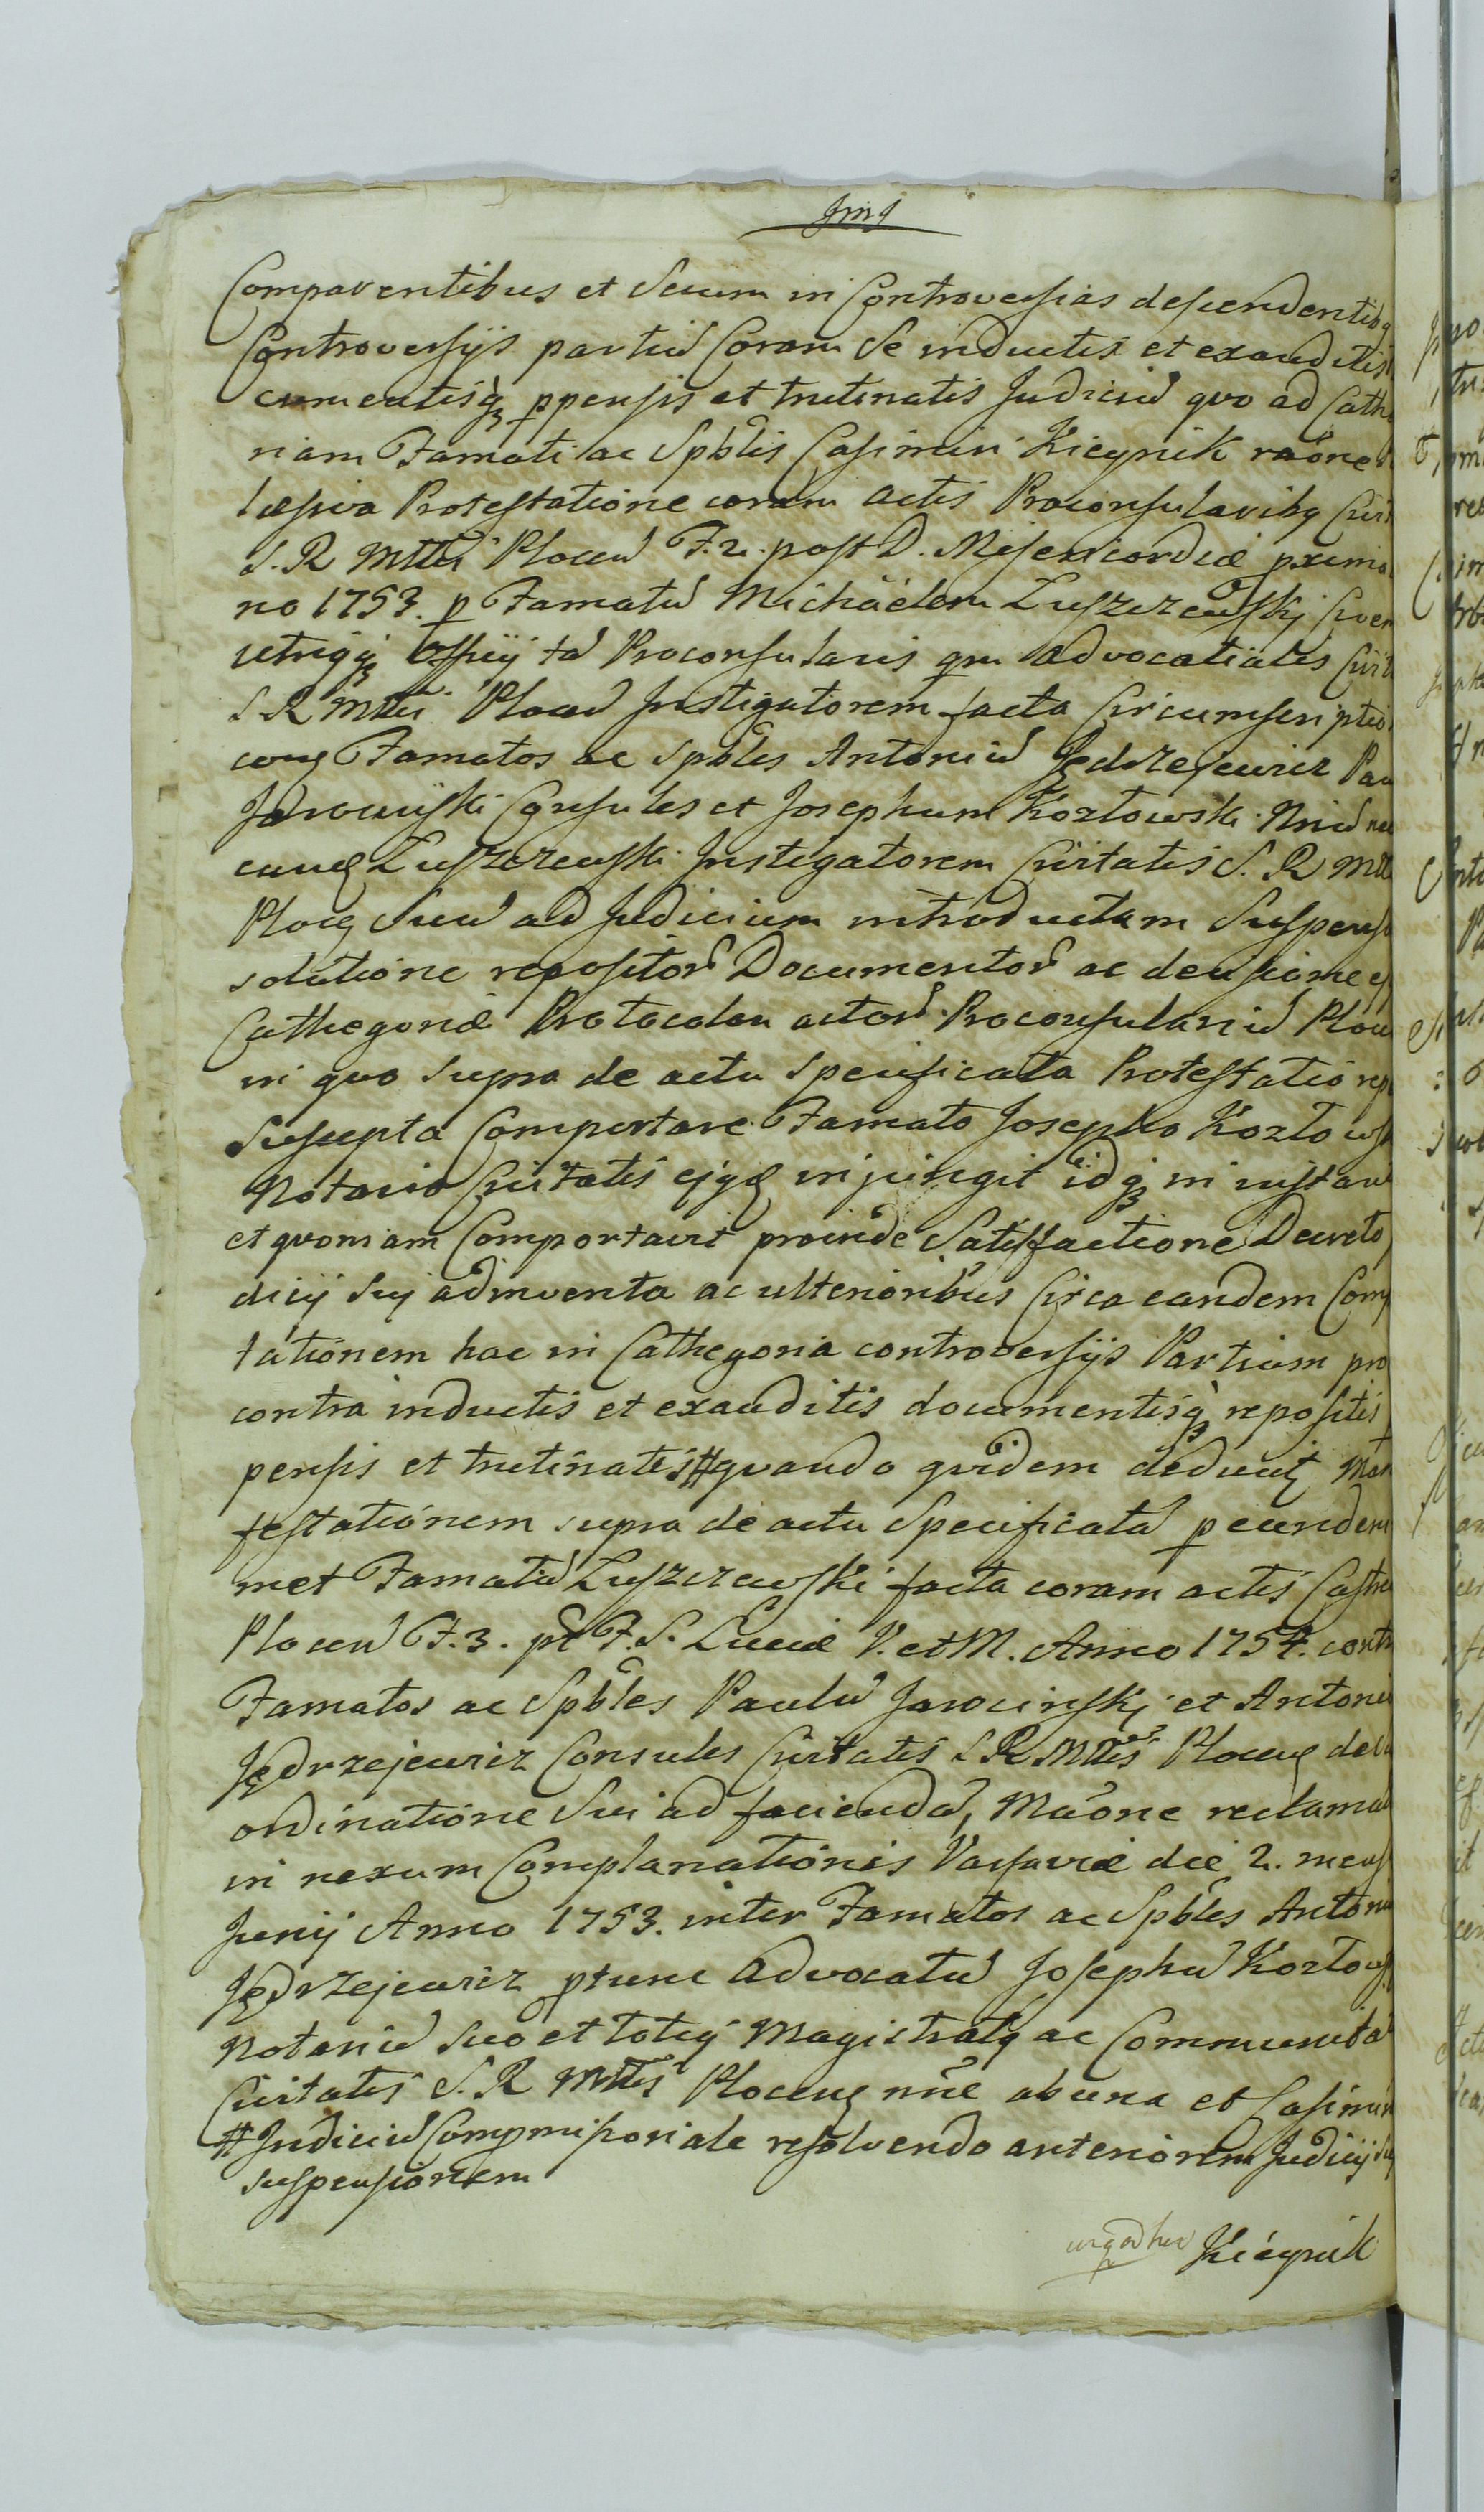 Comparentibus et Secum in Controversias descendentibq
Controversijs partiū Coram Se inductis et exauditis
cumentisq ppensis et trutinatis Judiciū quo ad Cathe
riam Famati ac Spblis Casimiri Kicynik raone
læsiva Protestatione coram actis Proconsularibq Civit
S. R Mttis Plocen F. 2. post D. Misericordiæ pxima
no 1753. p Famatū Michaelem Luszczewskj Civem
utriqq Officij ta Proconsularis qm Advocatialis Civit
S R Mttis Plocen Instigatorem facta Circumscriptio
conq Famatos ac Spbles Antoniū Jędrzejewicz Pau
Jarociński Consules et Josephum Kozłowski Nriū nec
eunq Luszczewski Instigatorem Civitatis S. R Mtt
Ploc Suū ad Judicium introductam Suspens
solutione repositor Documentor ac decisione ej
Cathegoriæ Protocolon actor Proconsulariū Ploce
in quo Supra de actu Specificata Protestatio rep
Suscepta Comportare Famato Josepho Kozłows
Notario Civitatis ejqq injungit idq in instan
et quoniam Comportavit proinde Satisfactione Decreto
dicij Sui adinventa ac ulterioribus Circa eandem Comp
tationem hac in Cathegoria controversijs Partium pro
contra inductis et exauditis documentisq repositis
pensis et trutinatis # quando quidem deducit Man
festationem supra de actu Specificatā p eundem
met Famatū Luszczewski facta coram actis Castre
Plocen F. 3. pt F. S. Luciæ V. et M. Anno 1754. contr
Famatos ac Spbles Paulū Jarocinskj et Antoniū
Jędrzejewicz Consules Civitatis S R Mttis Plocen de
ordinatione Sui ad faciendā, Maone reclama
in nexum Complanationis Varsaviæ die 2. mens
Junij Anno 1753. inter Famatos ac Spbles Antoniū
Jędrzejewicz ptunc Advocatū Josephū Kozłows
Notariū Suo et totiq Magistratq ac Communita
Civitatis S. R Mttis Plocen nne ab una et Casimir
# Judiciū Compromissoriale resolvendo anteriorem Judicij Sui
suspensionem
Kicynik